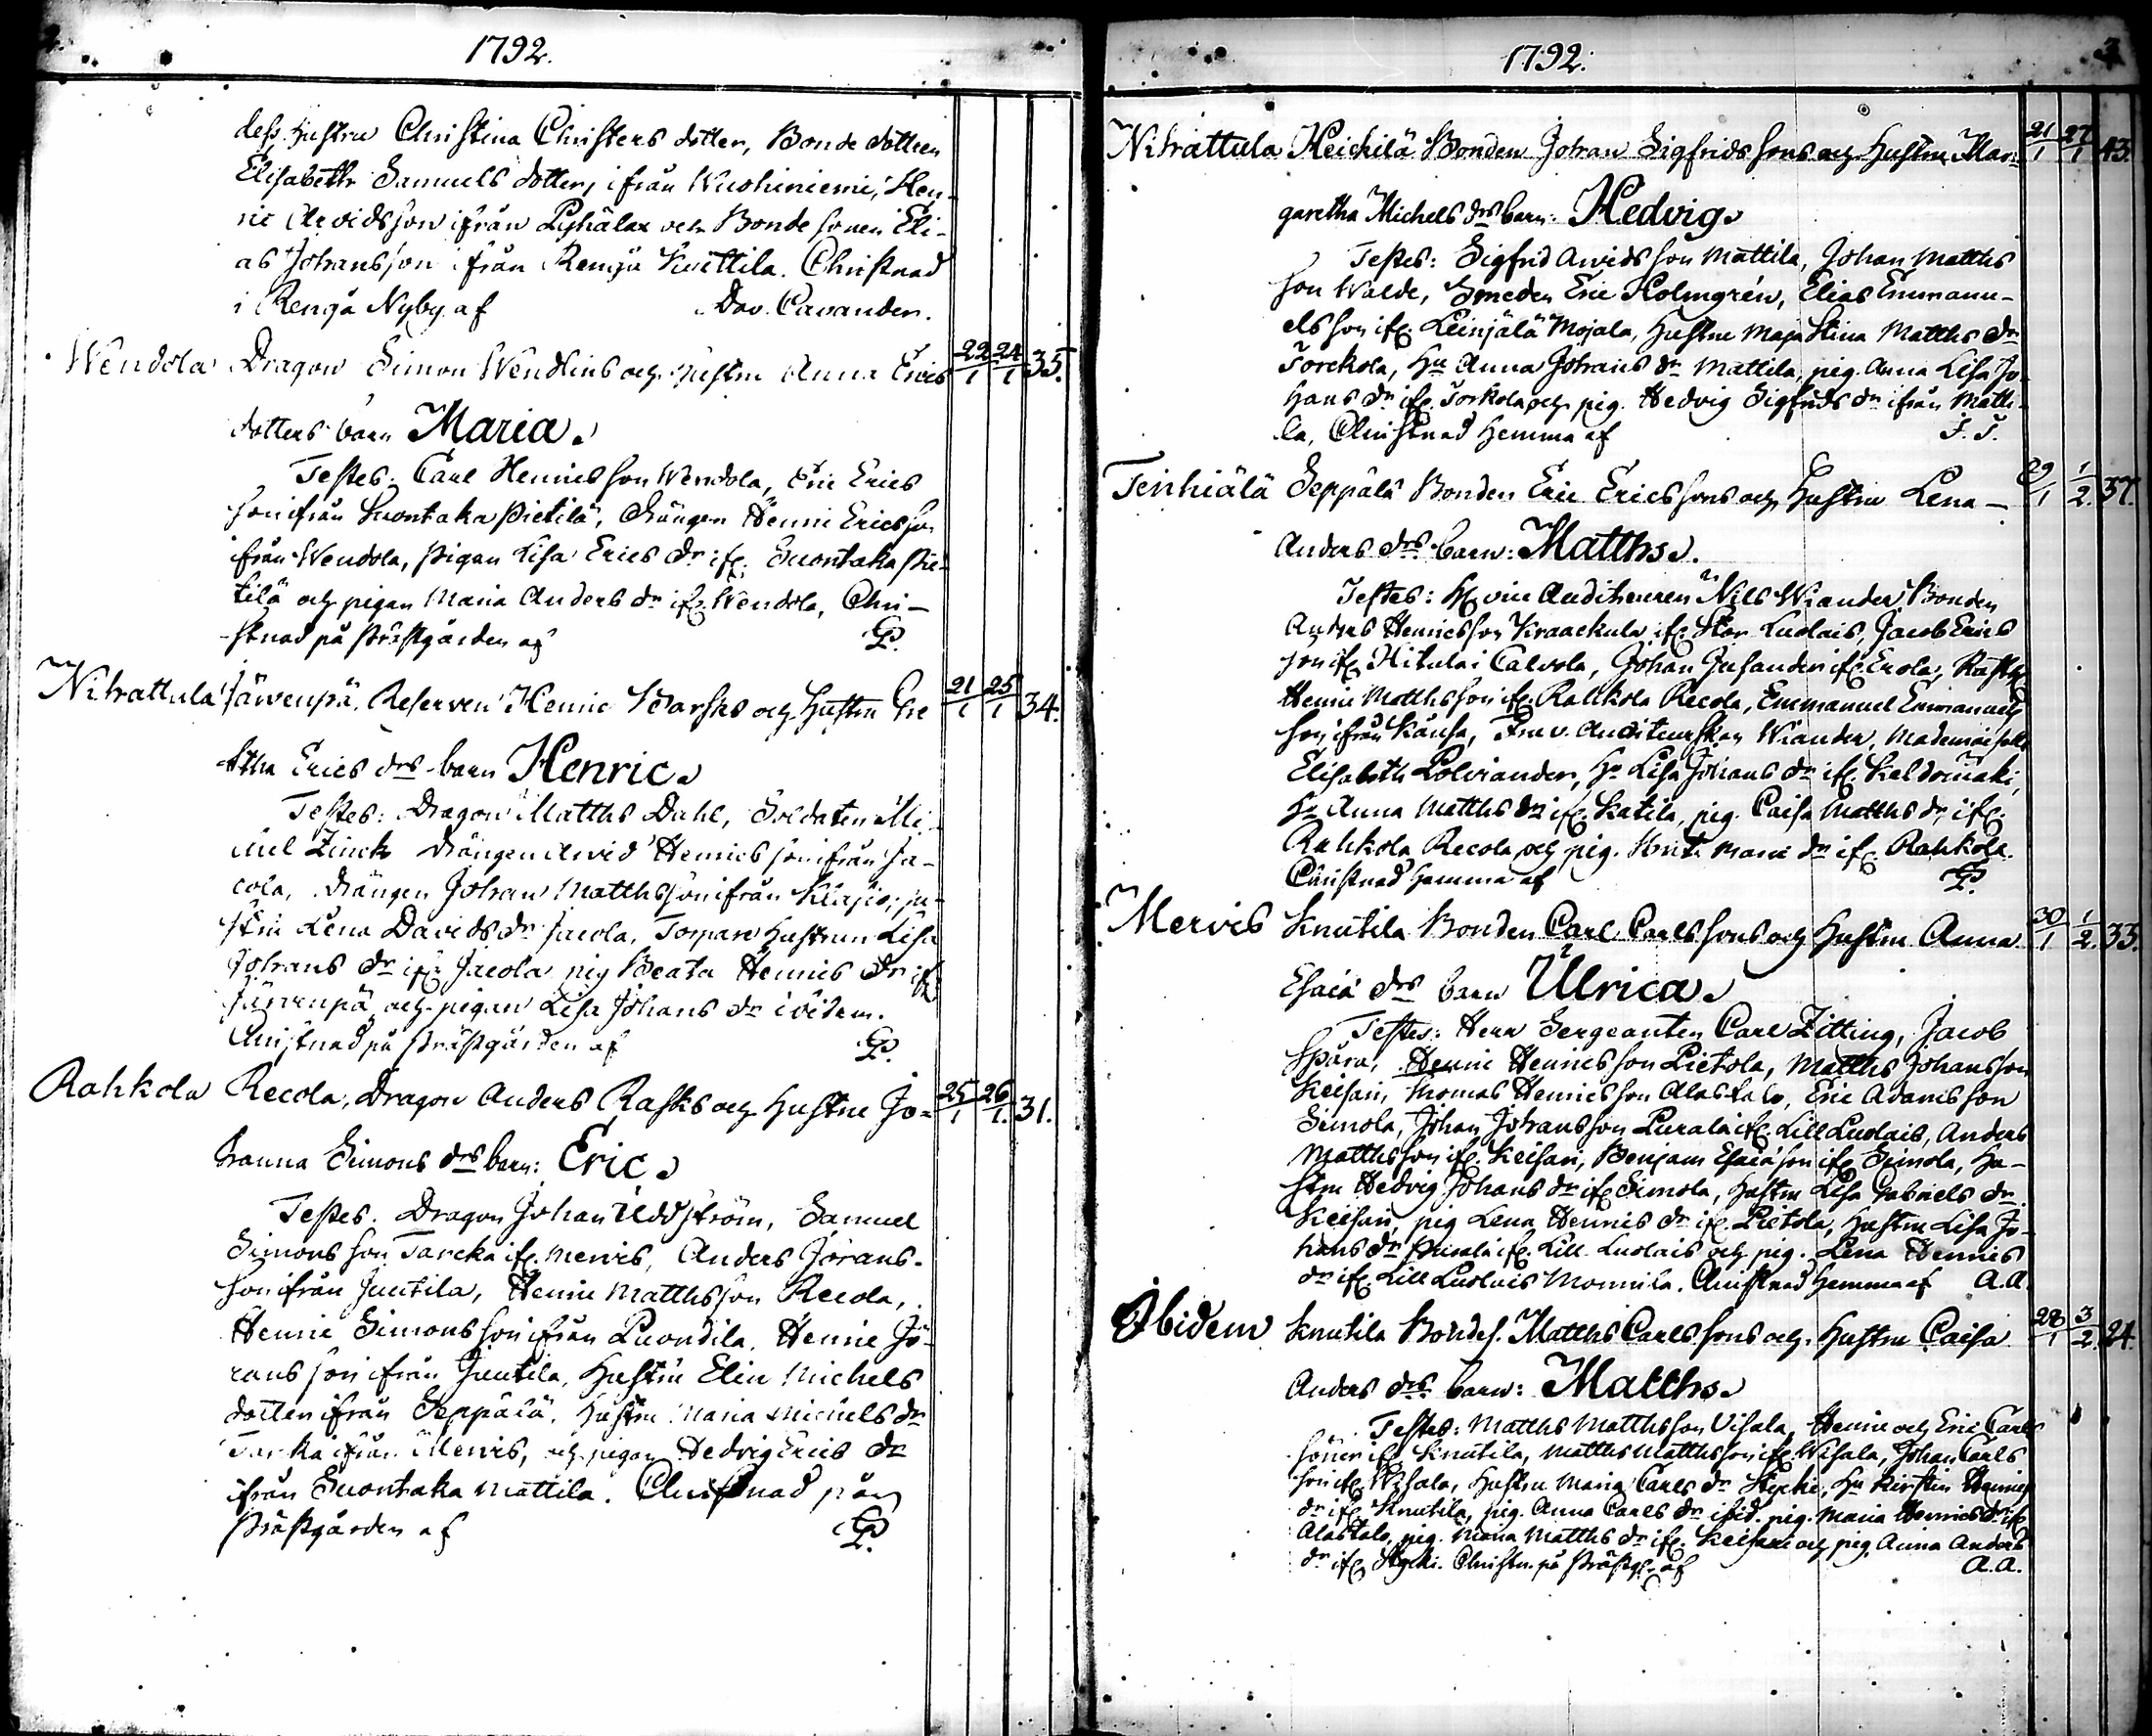 1792.
dess hustru Christina Christers dotter, Bonde dottren
Elisabeth Samuels dotter, ifrån Wuohiniemi, Hen-
ric Arvidsson ifrån Pyhälax och Bonde sonen Eli-
as Johansson ifrån Rengå Kuittila. Christnad
i Rengå Nyby af Dav. Cavander.
Wendola Dragon Simon Wendlins och hustru Anna Erics 22/1 24/1 35.
dotters barn Maria.
Testes: Carl Henricsson Wendola, Eric Erics
son ifrån Suontaka Pietilä, Drängen Henric Ericsson
ifrån Wendola, pigan Lisa Erics dr ifr. Suontaka Pie-
tilä och pigan Maria Anders dr ifr. Wendola, Chri-
stnad på Prästgården af GP.
Nihattula Järvenpä, Reserven Henric Barsks och hustru Gre 21/1 25/1 34.
tha Erics drs barn Henric.
Testes: Dragon Matths Dahl, Soldaten Mi-
chel Zinck Drängen Arvid Henrics son ifrån Ja-
cola, Drängen Johan Matthsson ifrån Klajio, hu-
stru Lena Davids dr Jacola, Torpare hustrun Lisa
Johans dr ifr Jacola pig Beata Henrics dr ifr
Järvenpä och pigan Lisa Johans dr ibidem.
Christnad på Prästgården af GP.
Rahkola Recola, Dragon Anders Rasks och hustru Jo- 25/1 26/1. 31.
hanna Simons drs barn: Eric.
Testes. Dragon Johan Uddström, Samuel
Simons son Tarcka ifr. Mervis, Anders Jörans-
son ifrån Juutila, Henric Matthsson Recola,
Henric Simons son ifrån Puondila, Henric Jö-
rans son ifrån Juutila, Hustru Elin Michels
dotter ifrån Seppälä, hustru Maria Michels dr
Tarcka ifrån Mervis, och pigan Hedvig Erics dr
ifrån Suontaka Mattila. Christnad på
Prästgården af GP.
1792. 3
Nihattula Heickilä Bonden Johan Sigfrids sons och hustru Mar- 21/1 27/1 43.
garetha Michels drs barn: Hedvig.
Testes: Sigfrid Arvidsson Mattila, Johan Matths
son Walde, Smeden Eric Holmgrén, Elias Emmanu-
els son ifr. Leinjälä Mojala, hustru Maja Stina Matths dr
Torckola, Hu Anna Johans dr Mattila, pig. Anna Lisa Jo-
hans dr ifr. Torkola och pig. Hedvig Sigfrids dr ifrån Matti-
la, Christnad hemma af J. T.
Tenhiälä Seppälä Bonden Eric Ericssons och hustru Lena 29/1 1/2. 37.
Anders drs barn: Matths.
Testes: Hr vice Auditeuren Nils Wiander Bonden
Anders Henricsson Kraackula ifr. Stor Luolais, Jacob Erics
son ifr Hitula i Calvola, Johan Jusander ifr. Erola, Rustg
Henric Matthsson ifr. Rahkola Recola, Emmanuel Emmanuels
son ifrån Kausa, Fru v. Auditeurskan Wiander, Mademoiselle
Elisabeth Polviander, Hu Lisa Johans dr ifr. Keldomäki
Hu Anna Matths dr ifr. Katila, pig. Caisa Matths dr ifr.
Rahkola Recola och pig. dr ifr. Rahkola.
Christnad hemma af GP.
Mervis Knutila Bonden Carl Carlssons och hustru Anna 30/1 1/2. 33.
Esaiæ drs barn Ulrica.
Testes: Herr Sergeanten Carl Zitting, Jacob
Spåra, Henric Henricsson Pietola, Matths Johansson
Keisari, Thomas Henricsson Alastalo, Eric Adamsson
Simola, Johan Johansson Purala ifr. Lill Luolais, Anders
Matthsson ifr. Keisari, Benjam Esaiæson ifr Simola, hu-
stru Hedvig Johans dr ifr Simola, hustru Lisa Gabriels dr
Keisari, pig Lena Henrics dr ifr. Pietola, hustru Lisa Jo-
hans dr Purala ifr. Lill Luolais och pig. Lena Henrics
dr ifr. Lill Luolais Monnila. Christnad hemma af A.A.
Ibidem Knutila Bondes. Matths Carlssons och hustru Caisa 28/1 3/2. 24.
Anders drs barn: Matths.
Testes: Matths Matthsson Uisala, Henric och Eric Carls
söner ifr. Knutila, Matths Matthsson ifr. Wisala, Johan Carls
son ifr. Wisala, hustru Maria Carls dr Hycki, Hu Kirstin Henrics
dr ifr. Knutila, pig. Anna Carls dr ibid. pig. Maria Henrics dr ifr
Alastalo, pig. Maria Matths dr ifr. Keisari och pig. Anna Anders
dr ifr Hycki. Christn. på Prästg. af A.A.